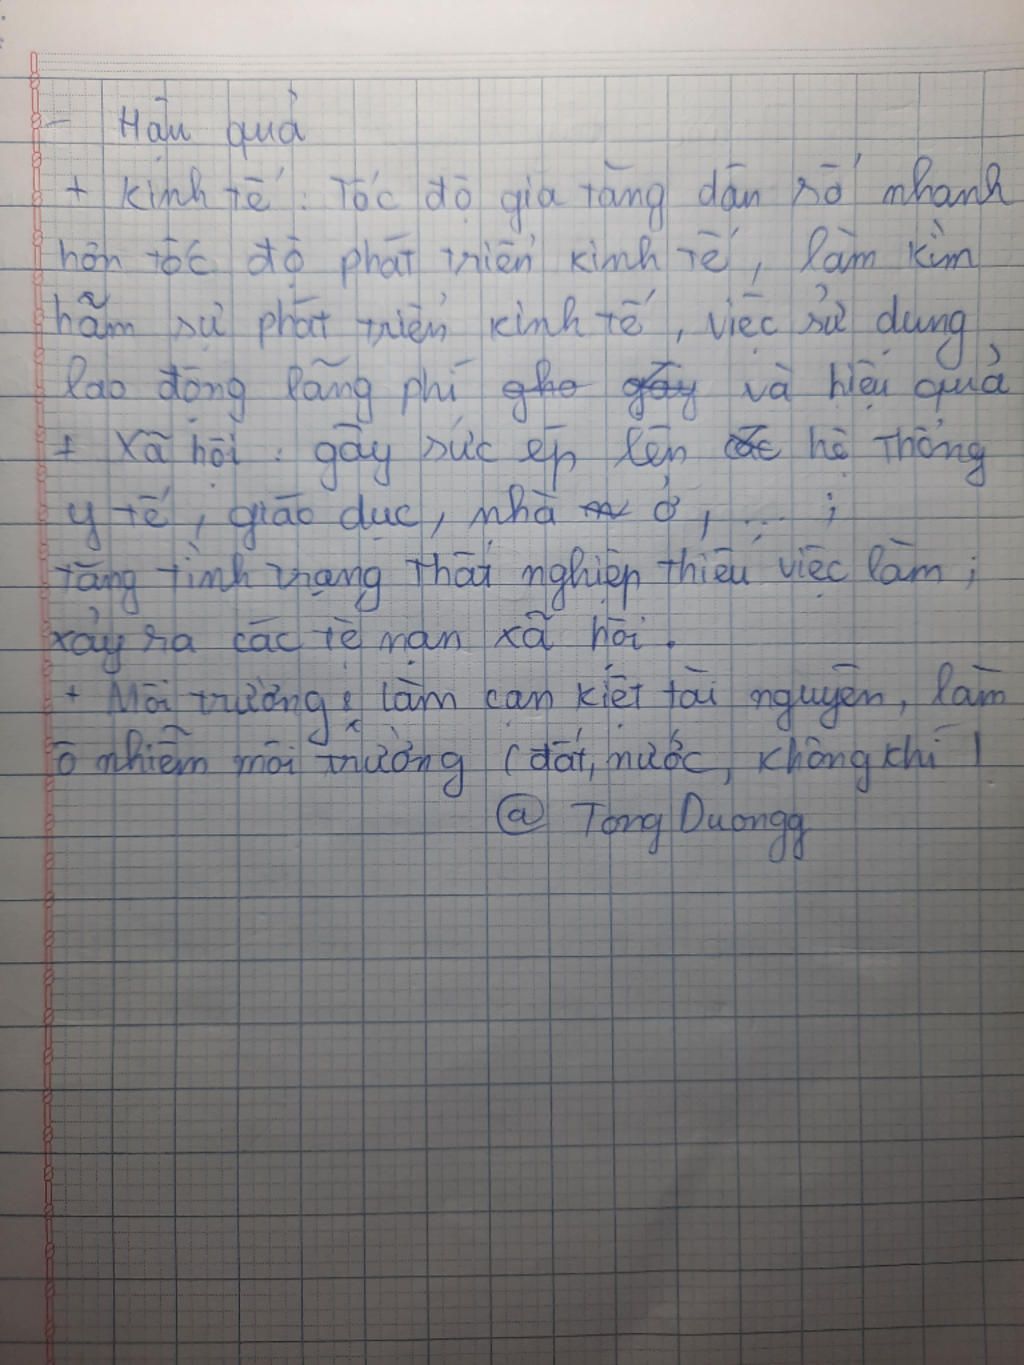 - Hậu quả
+ Kinh tế : Tốc độ gia tăng dân số nhanh
hơn tốc độ phát triển kinh tế, làm kìm
hãm sự phát triển kinh tế, việc sử dụng
lao động lãng phí gho gây và hiệu quả
+ Xã hội : gây sức ép lên các hệ thống
y tế, giáo dục, nhà ở, ... ;
tăng tình trạng thất nghiệp thiếu việc làm ;
xảy ra các tệ nạn xã hội.
+ Môi trường : làm cạn kiệt tài nguyên, làm
ô nhiễm môi trường (đất, nước, không khí)
@ Tong Duongg